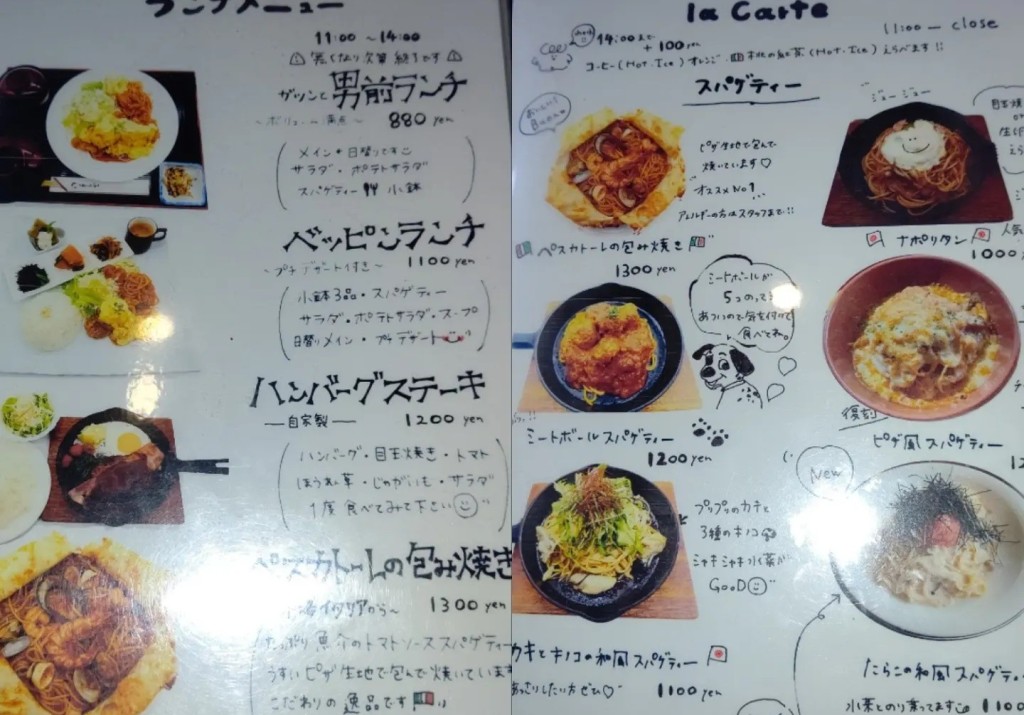 ランチメニュー
11:00 ~14:00
⚠ 無くなり次第 終了です ⚠
ガツンと 男前ランチ
~ボリューム満点~ 880 yen
メイン・日替りですこ
サラダ・ポテトサラダ
スパゲティー 小鉢
ベッピンランチ
~プチデザート付き~ 1100 yen
小鉢3品・スパゲティー
サラダ・ポテトサラダ・スープ
日替りメイン・プチデザート
ハンバーグステーキ
—自家製— 1200 yen
ハンバーグ・目玉焼き・トマト
ほうれん草・じゃがいも・サラダ
1度 食べてみて下さい
ペスカトーレの包み焼き
1300 yen
たっぷり魚介のトマトソーススパゲティー
うすいピザ生地で包んで焼いています
こだわりの逸品です
la Carte
11:00 — close
14:00まで
+100yen
コーヒー(Hot・Ice) オレンジ・桃の紅茶(Hot・Ice)えらべます!!
スパゲティー
ピザ生地で包んで
焼いています♡
オススメNo1.
アレルギーの方はスタッフまで!!
ペスカトーレの包み焼き
1300 yen
ジュージュー
目玉焼
or
ナポリタン
1000
ミートボールが
5つのってる
あついので気を付けて
食べてね。
ミートボールスパゲティー
1200 yen
復刻
ピザ風スパゲティー
プリプリのカキと
3種のキノコ
シャキシャキ水菜が
GooD
カキとキノコの和風スパゲティー
あっさりしたい方ぜひ♡
1100 yen
New
たらこの和風スパゲティ
小菜とのり乗ってます 1100